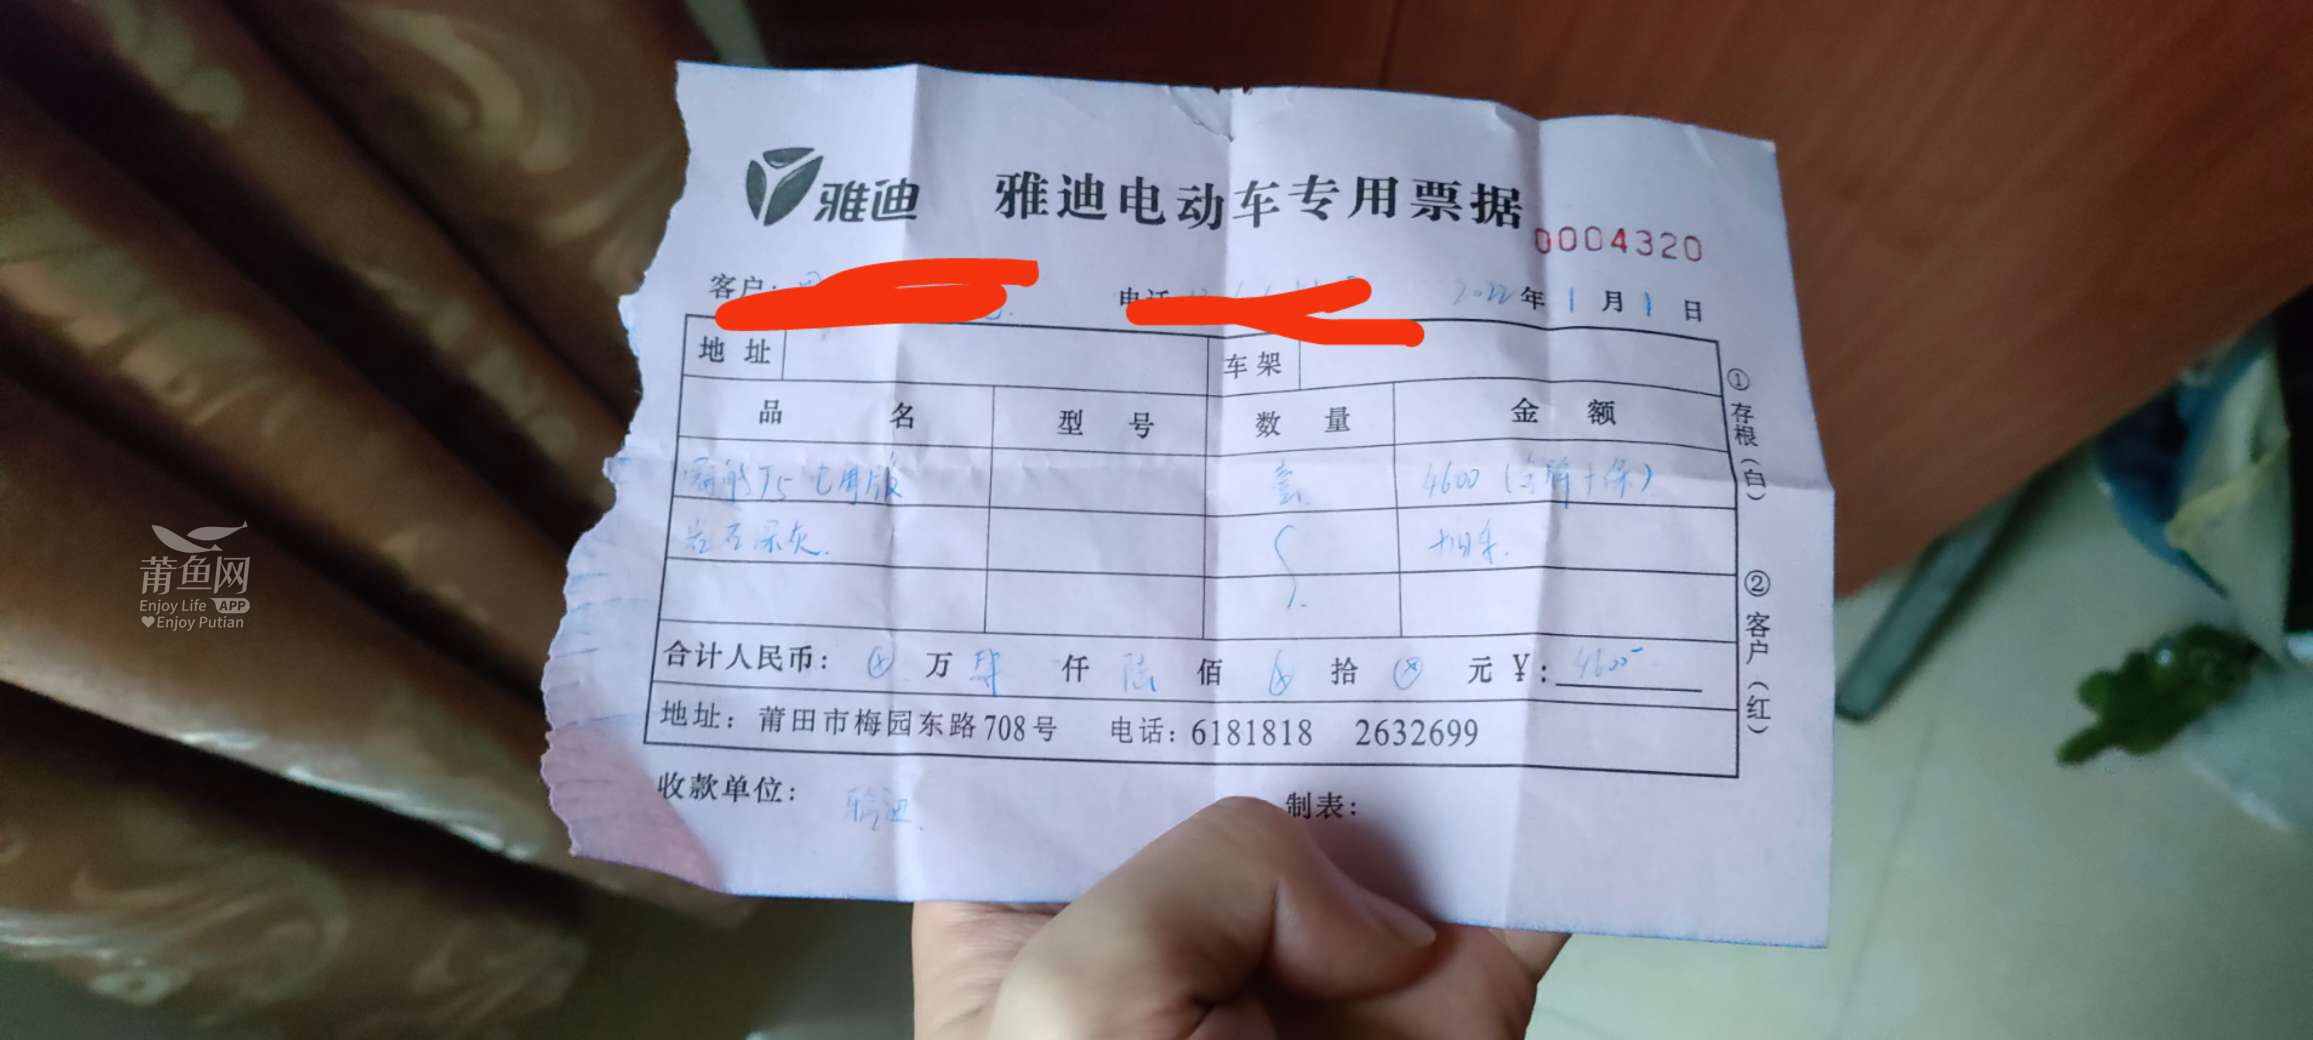 雅迪 雅迪电动车专用票据
0004320
客户: 电话 2022年1月1日
地址 车架
品名 型号 数量 金额
T5 壹 4600
岩石深灰.
合计人民币: ⊗万肆仟陆佰⊗拾⊗元 ¥: 4600
地址: 莆田市梅园东路708号 电话: 6181818 2632699
收款单位: 雅迪. 制表:
①存根(白) ②客户(红)
莆鱼网
Enjoy Life APP
Enjoy Putian